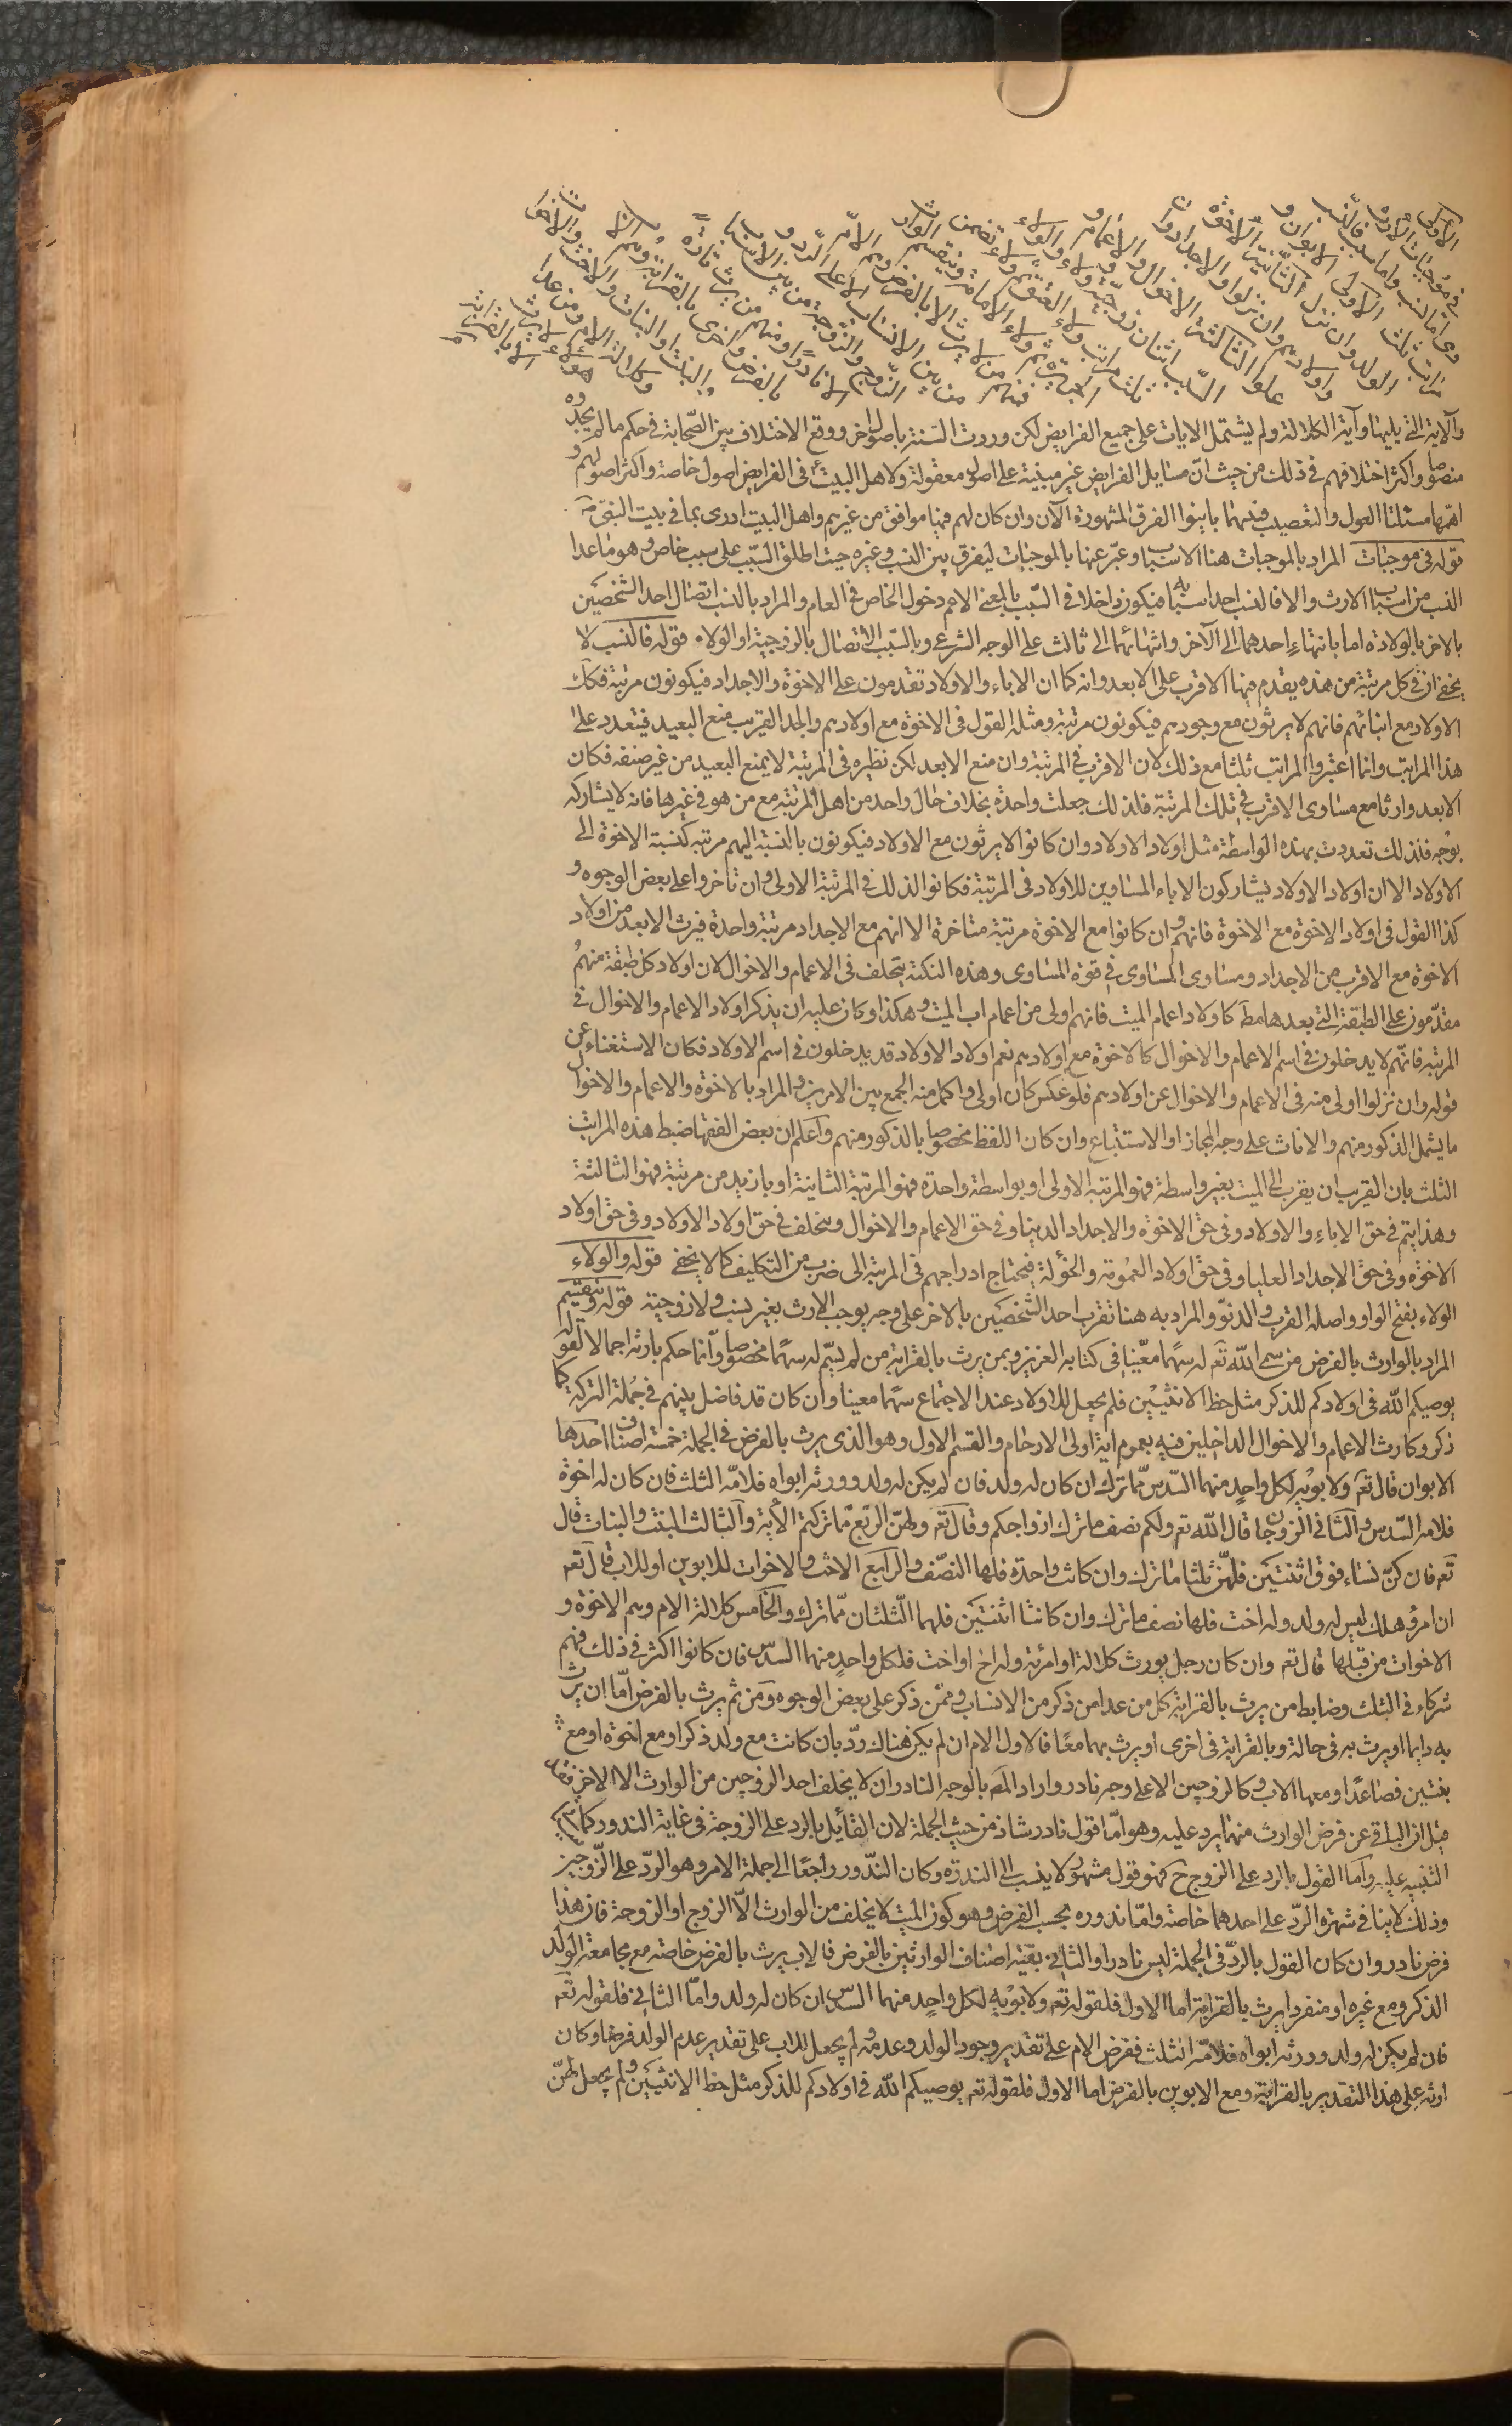 الأول
في موجبات الارث
وهي اما نسب واما سبب فالنسب
مراتب ثلث الاولى الابوان و
الولد وان نزل الثانية الاخوة
واولادهم وان نزلوا والاجداد وان
علوا الثالثة الاخوال والاعمام و
السبب اثنان زوجية وولاء والولاء
ثلث مراتب ولاء العتق ثم ولاء تضمن
الجريرة ثم ولاء الامامة وينقسم الوراث
فمنهم من لا يرث الا بالفرض وهم الام
من بين الانساب الا على الرد و
الزوج والزوجة من بين الاسباب
الا نادرا ومنهم من يرث تارة
بالفرض واخرى بالقرابة وهم الاب
والبنت او البنات والاخت والاخوات
وكلالة الام ومن عدا
هؤلاء لا يرث
الا بالقرابة
والآية التي يليها وآية الكلالة ولم يشتمل الايات على جميع الفرايض لكن وردت السنة باصول اخر ووقع الاختلاف بين الصحابة في حكم ما لم يجدوه
منصوصا واكثر اختلافهم في ذلك من حيث ان مسايل الفرايض غير مبنية على اصول معقولة ولاهل البيت ع في الفرايض اصول خاصة واكثر اصولهم و
اهمها مسئلتا العول والتعصيب فبهما باينوا الفرق المشهورة الآن وان كان لهم فيهما موافق من غيرهم واهل البيت ادرى بما في بيت النبي ص
قوله في موجبات المراد بالموجبات هنا الاسباب وعبر عنها بالموجبات ليفرق بين النسب وغيره حيث اطلق السبب على سبب خاص وهو ما عدا
النسب من اسباب الارث والا فالنسب احد اسبابه فيكون داخلا في السبب بالمعنى الاعم دخول الخاص في العام والمراد بالنسب اتصال احد الشخصين
بالاخر بالولادة اما بانتهاء احدهما الى الآخر وانتهائهما الى ثالث على الوجه الشرعي وبالسبب الاتصال بالزوجية او الولاء قوله فالنسب لا
يخفى ان في كل مرتبة من هذه يقدم فيها الاقرب على الابعد وانه كما ان الاباء والاولاد تقدمون على الاخوة والاجداد فيكونون مرتبة فكذلك
الاولاد مع ابنائهم فانهم لا يرثون مع وجودهم فيكونون مرتبة ومثله القول في الاخوة مع اولادهم والجد القريب منع البعيد فيتعدد على
هذا المراتب وانما اعتبروا المراتب ثلثا مع ذلك لان الاقرب في المرتبة وان منع الابعد لكن نظيره في المرتبة لا يمنع البعيد من غير صنفه فكان
الابعد وارثا مع مساوى الاقرب في تلك المرتبة فلذلك جعلت واحدة بخلاف حال واحد من اهل المرتبة مع من هو في غيرها فانه لا يشاركه
بوجه فلذلك تعددت بهذه الواسطة مثل اولاد الاولاد وان كانوا لا يرثون مع الاولاد فيكونون بالنسبة اليهم مرتبه كنسبة الاخوة الى
الاولاد الا ان اولاد الاولاد يشاركون الاباء المساوين للاولاد في المرتبة فكانوا لذلك في المرتبة الاولى وان تاخروا على بعض الوجوه و
كذا القول في اولاد الاخوة مع الاخوة فانهم وان كانوا مع الاخوة مرتبة متاخرة الا انهم مع الاجداد مرتبة واحدة فيرث الابعد من اولاد
الاخوة مع الاقرب من الاجداد ومساوى المساوى في قوة المساوى وهذه النكتة يتخلف في الاعمام والاخوال لان اولاد كل طبقة منهم
مقدمون على الطبقة التي بعدها مط كاولاد اعمام الميت فانهم اولى من اعمام اب الميت وهكذا وكان عليه ان يذكر اولاد الاعمام والاخوال في
المرتبه فانهم لا يدخلون في اسم الاعمام والاخوال كالاخوة مع اولادهم نعم اولاد الاولاد قد يدخلون في اسم الاولاد فكان الاستغناء عن
قوله وان نزلوا اولى منه في الاعمام والاخوال عن اولادهم فلو عكس كان اولى واكمل منه الجمع بين الامرين والمراد بالاخوة والاعمام والاخوال
ما يشمل الذكور منهم والاناث على وجه المجاز او الاستتباع وان كان اللفظ مخصوصا بالذكور منهم واعلم ان بعض الفقها ضبط هذه المراتب
الثلث بان القريب ان يقرب الى الميت بغير واسطة فهو المرتبه الاولى او بواسطة واحدة فهو المرتبة الثانية او بازيد من مرتبة فهو الثالثة
وهذا يتم في حق الاباء والاولاد وفي حق الاخوة والاجداد الدنيا وفي حق الاعمام والاخوال ويتخلف في حق اولاد الاولاد وفي حق اولاد
الاخوة وفي حق الاجداد العليا وفي حق اولاد العمومة والخؤلة فيحتاج ادراجهم في المرتبة الى ضرب من التكليف كما لا يخفى قوله والولاء
الولاء بفتح الواو واصله القرب والدنو والمراد به هنا تقرب احد الشخصين بالاخر على وجه يوجب الارث بغير نسب ولا زوجية قوله وينقسم
المراد بالوارث بالفرض من سمى الله تعم له سهما معينا في كتابه العزيز وبمن يرث بالقرابة من لم يسم له سهما مخصوصا وانما حكم بارثه اجمالا لقوله
يوصيكم الله في اولادكم للذكر مثل حظ الانثيين فلم يجعل للاولاد عند الاجتماع سهما معينا وان كان قد فاضل بينهم في جملة التركة كما
ذكر وكارث الاعمام والاخوال الداخلين فيه بعموم اية اولى الارحام والقسم الاول وهو الذي يرث بالفرض في الجملة خمسة اصناف احدها
الابوان قال تعم ولابويه لكل واحد منهما السدس مما ترك ان كان له ولد فان لم يكن له ولد وورثه ابواه فلامه الثلث فان كان له اخوة
فلامه السدس والثاني الزوجان قال الله تعم ولكم نصف ما ترك ازواجكم وقال تعم ولهن الربع مما تركتم الآية والثالث البنت والبنات قال
تعم فان كن نساء فوق اثنتين فلهن ثلثا ما ترك وان كانت واحدة فلها النصف والرابع الاخت والاخوات للابوين او للاب قال تعم
ان امرؤ هلك ليس له ولد وله اخت فلها نصف ما ترك وان كانتا اثنتين فلهما الثلثان مما ترك والخامس كلالة الام وهم الاخوة و
الاخوات من قبلها قال تعم وان كان رجل يورث كلالة او امرئة وله اخ او اخت فلكل واحد منهما السدس فان كانوا اكثر في ذلك فهم
شركاء في الثلث وضابط من يرث بالقرابة كل من عدا من ذكر من الانساب وممن ذكر على بعض الوجوه ومن ثم يرث بالفرض اما ان يرث
به دايما او يرث به في حالة وبالقرابة في اخرى او يرث بهما معا فالاول الام ان لم يكن هناك رد بان كانت مع ولد ذكر او مع اخوة او مع
بنتين فصاعدا ومعها الاب وكالزوجين الا على وجه نادر واراد المص بالوجه النادر ان لا يخلف احد الزوجين من الوارث الا الاخر فقد
قيل ان الباقي عن فرض الوارث منهما يرد عليه وهو اما قول نادر شاذ من حيث الجملة لان القائل بالرد على الزوجة في غاية الندور كما
التنبيه عليه واما القول بالرد على الزوج ح فهو قول مشهور لا ينسب الى الندرة وكان الندور راجعا الى جملة الامر وهو الرد على الزوجين
وذلك لا ينافي شهرة الرد على احدهما خاصة واما ندوره بحسب الفرض وهو كون الميت لا يخلف من الوارث الا الزوج او الزوجة فان هذا
فرض نادر وان كان القول بالرد في الجملة ليس نادرا والثاني بقية اصناف الوارثين بالفرض فالاب يرث بالفرض خاصة مع مجامعة الولد
الذكر ومع غيره او منفردا يرث بالقرابة اما الاول فلقوله تعم ولابويه لكل واحد منهما السدس ان كان له ولد واما الثاني فلقوله تعم
فان لم يكن له ولد وورثه ابواه فلامه الثلث ففرض الام على تقدير وجود الولد وعدمه ولم يجعل للاب على تقدير عدم الولد فرضا وكان
ارثه على هذا التقدير بالقرابة ومع الابوين بالفرض اما الاول فلقوله تعم يوصيكم الله في اولادكم للذكر مثل حظ الانثيين ولم يجعل لهن